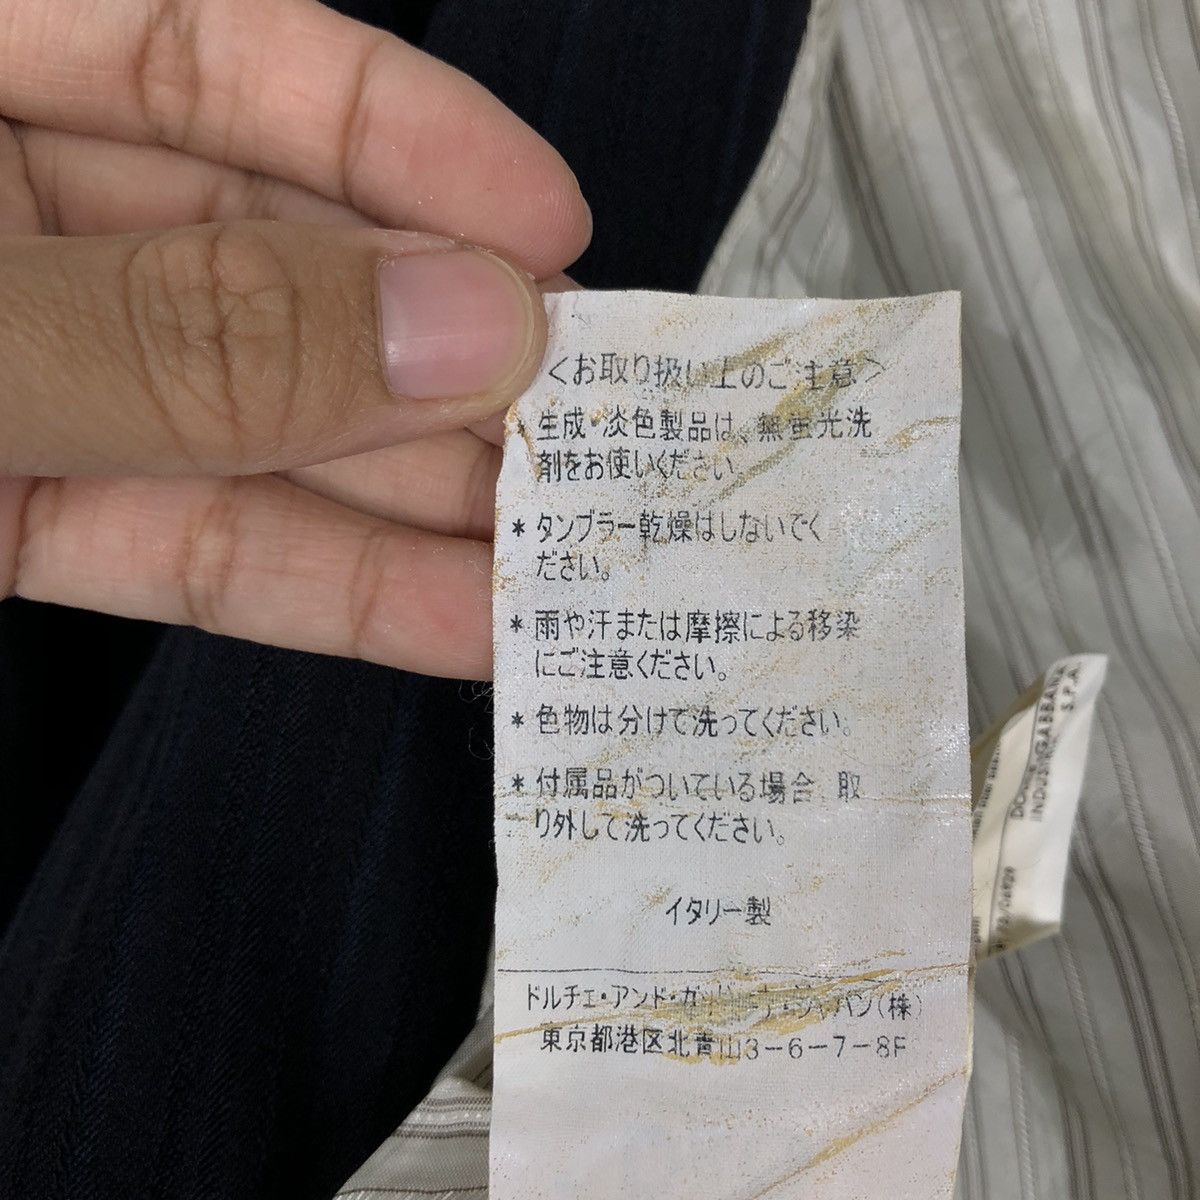 ＜お取り扱い上のご注意＞
* 生成・淡色製品は、無蛍光洗
剤をお使いください。
* タンブラー乾燥はしないでく
ださい。
* 雨や汗または摩擦による移染
にご注意ください。
* 色物は分けて洗ってください。
* 付属品がついている場合 取
り外して洗ってください。
イタリー製
ドルチェ・アンド・ガッバーナ・ジャパン(株)
東京都港区北青山3-6-7-8F
GABBANA
INDUS
S.P.A.